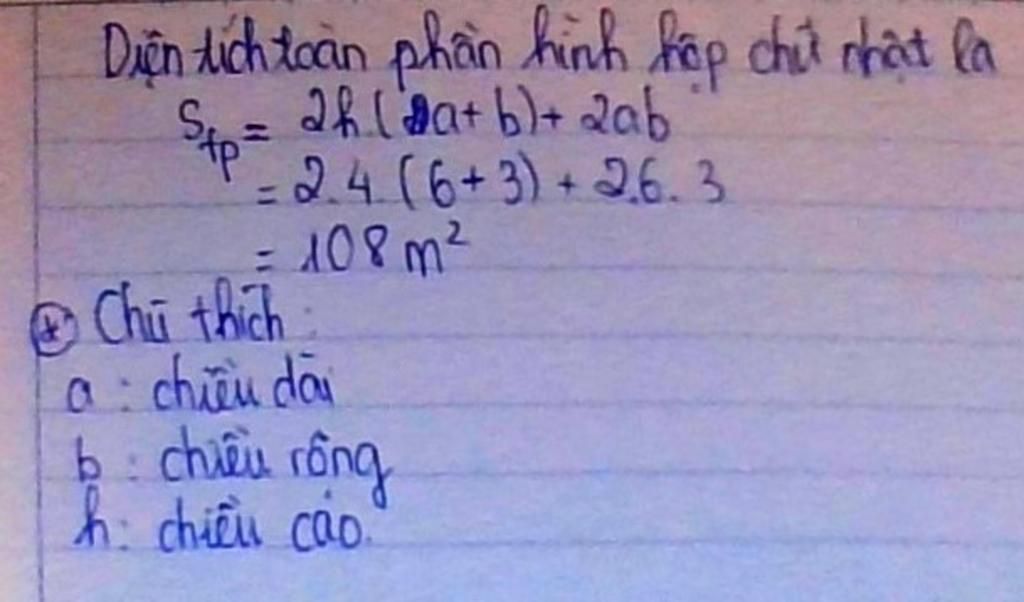 Diện tích toàn phần hình hộp chữ nhật là
Stp = 2h (a + b) + 2ab
= 2.4.(6 + 3) + 2.6.3
= 108 m²
(*) Chú thích:
a : chiều dài
b : chiều rộng
h : chiều cao.